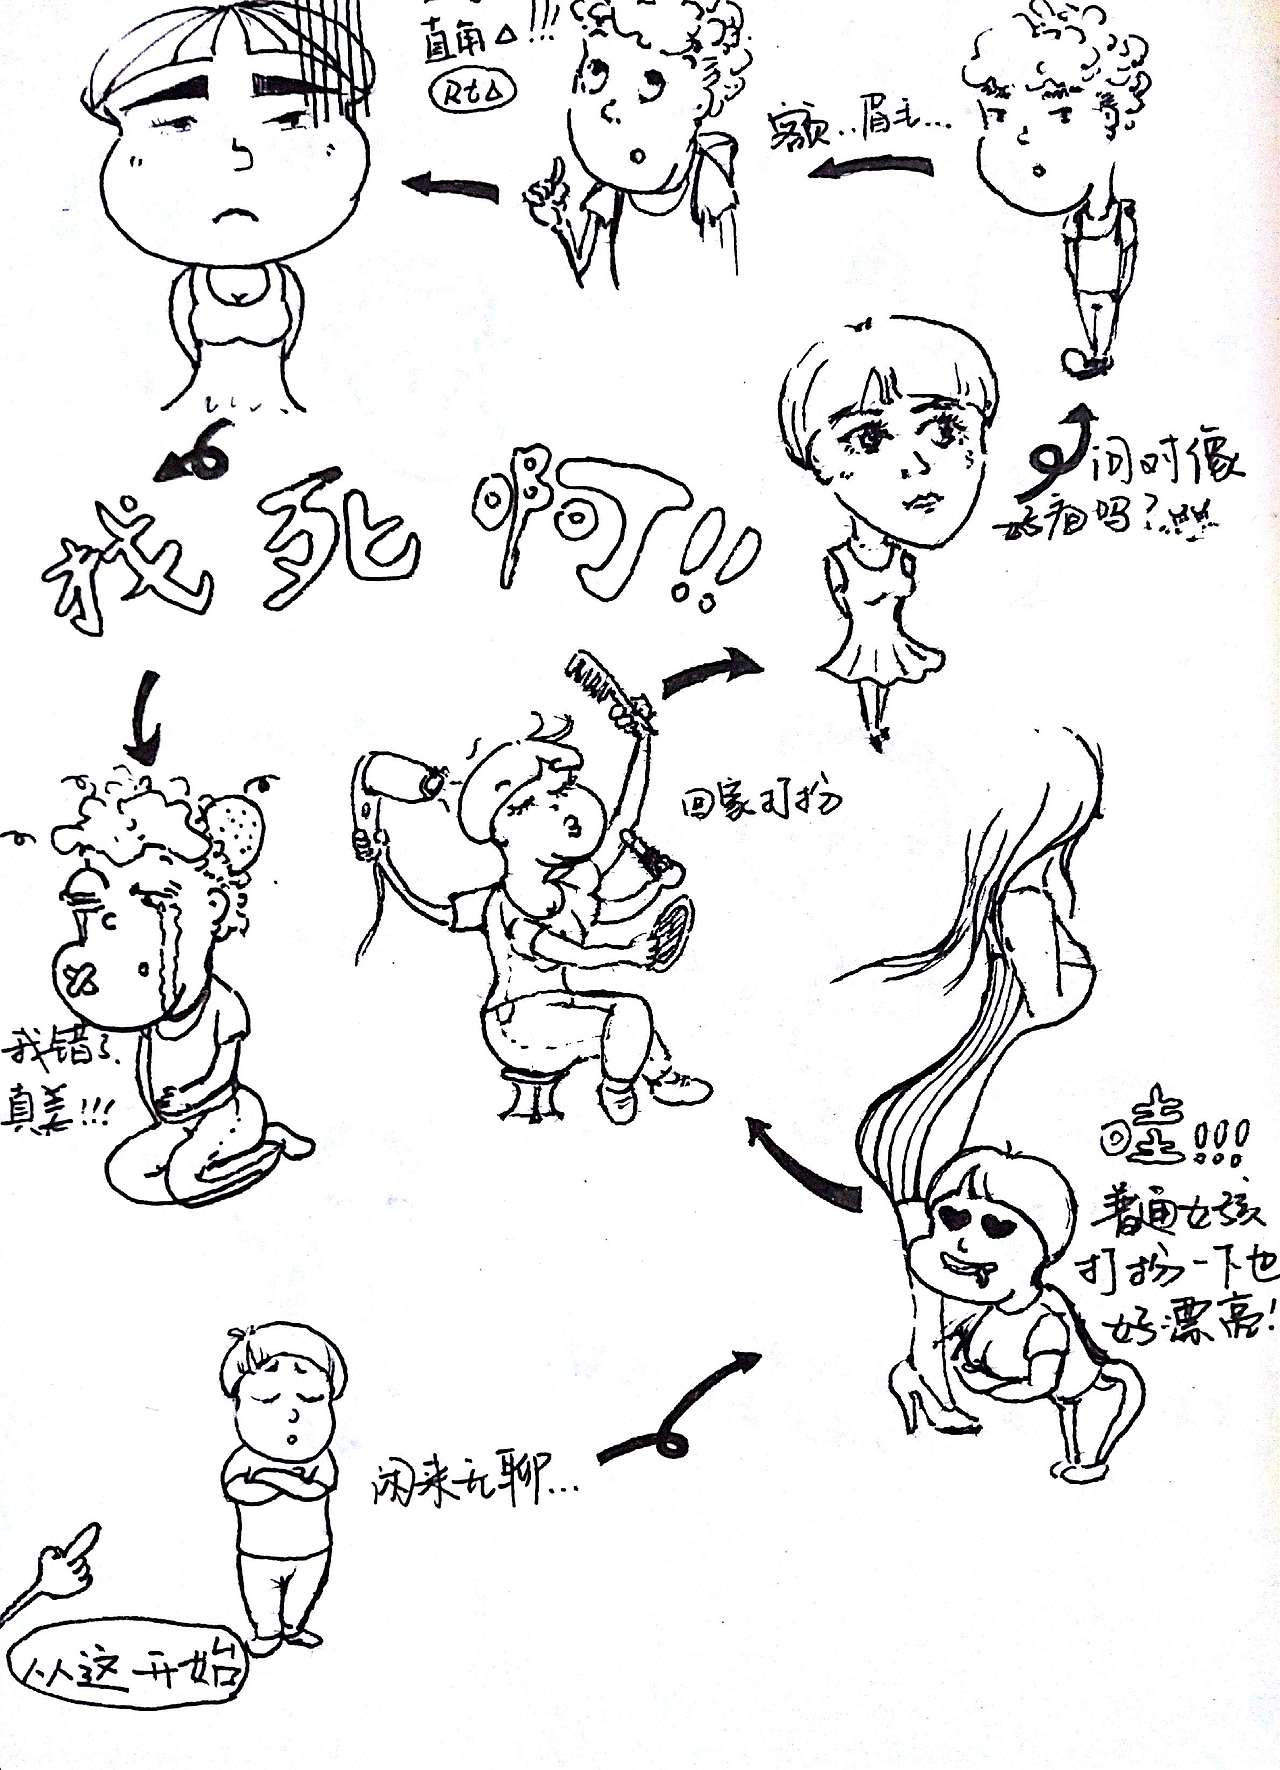 直角△!!!
Rt△
额..眉毛...
问对像
好看吗?
找死啊!!
回家打扮
我错了.
真美!!!
哇!!!
普通女孩
打扮一下也
好漂亮!
闲来无聊...
从这开始